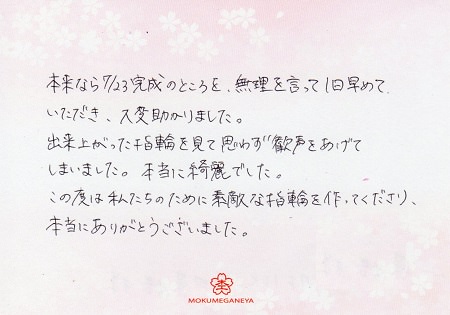 本来なら7/23完成のところを、無理を言って1日早めて
いただき、大変助かりました。
出来上がった指輪を見て思わず歓声をあげて
しまいました。本当に綺麗でした。
この度は私たちのために素敵な指輪を作ってくださり、
本当にありがとうございました。
MOKUMEGANEYA